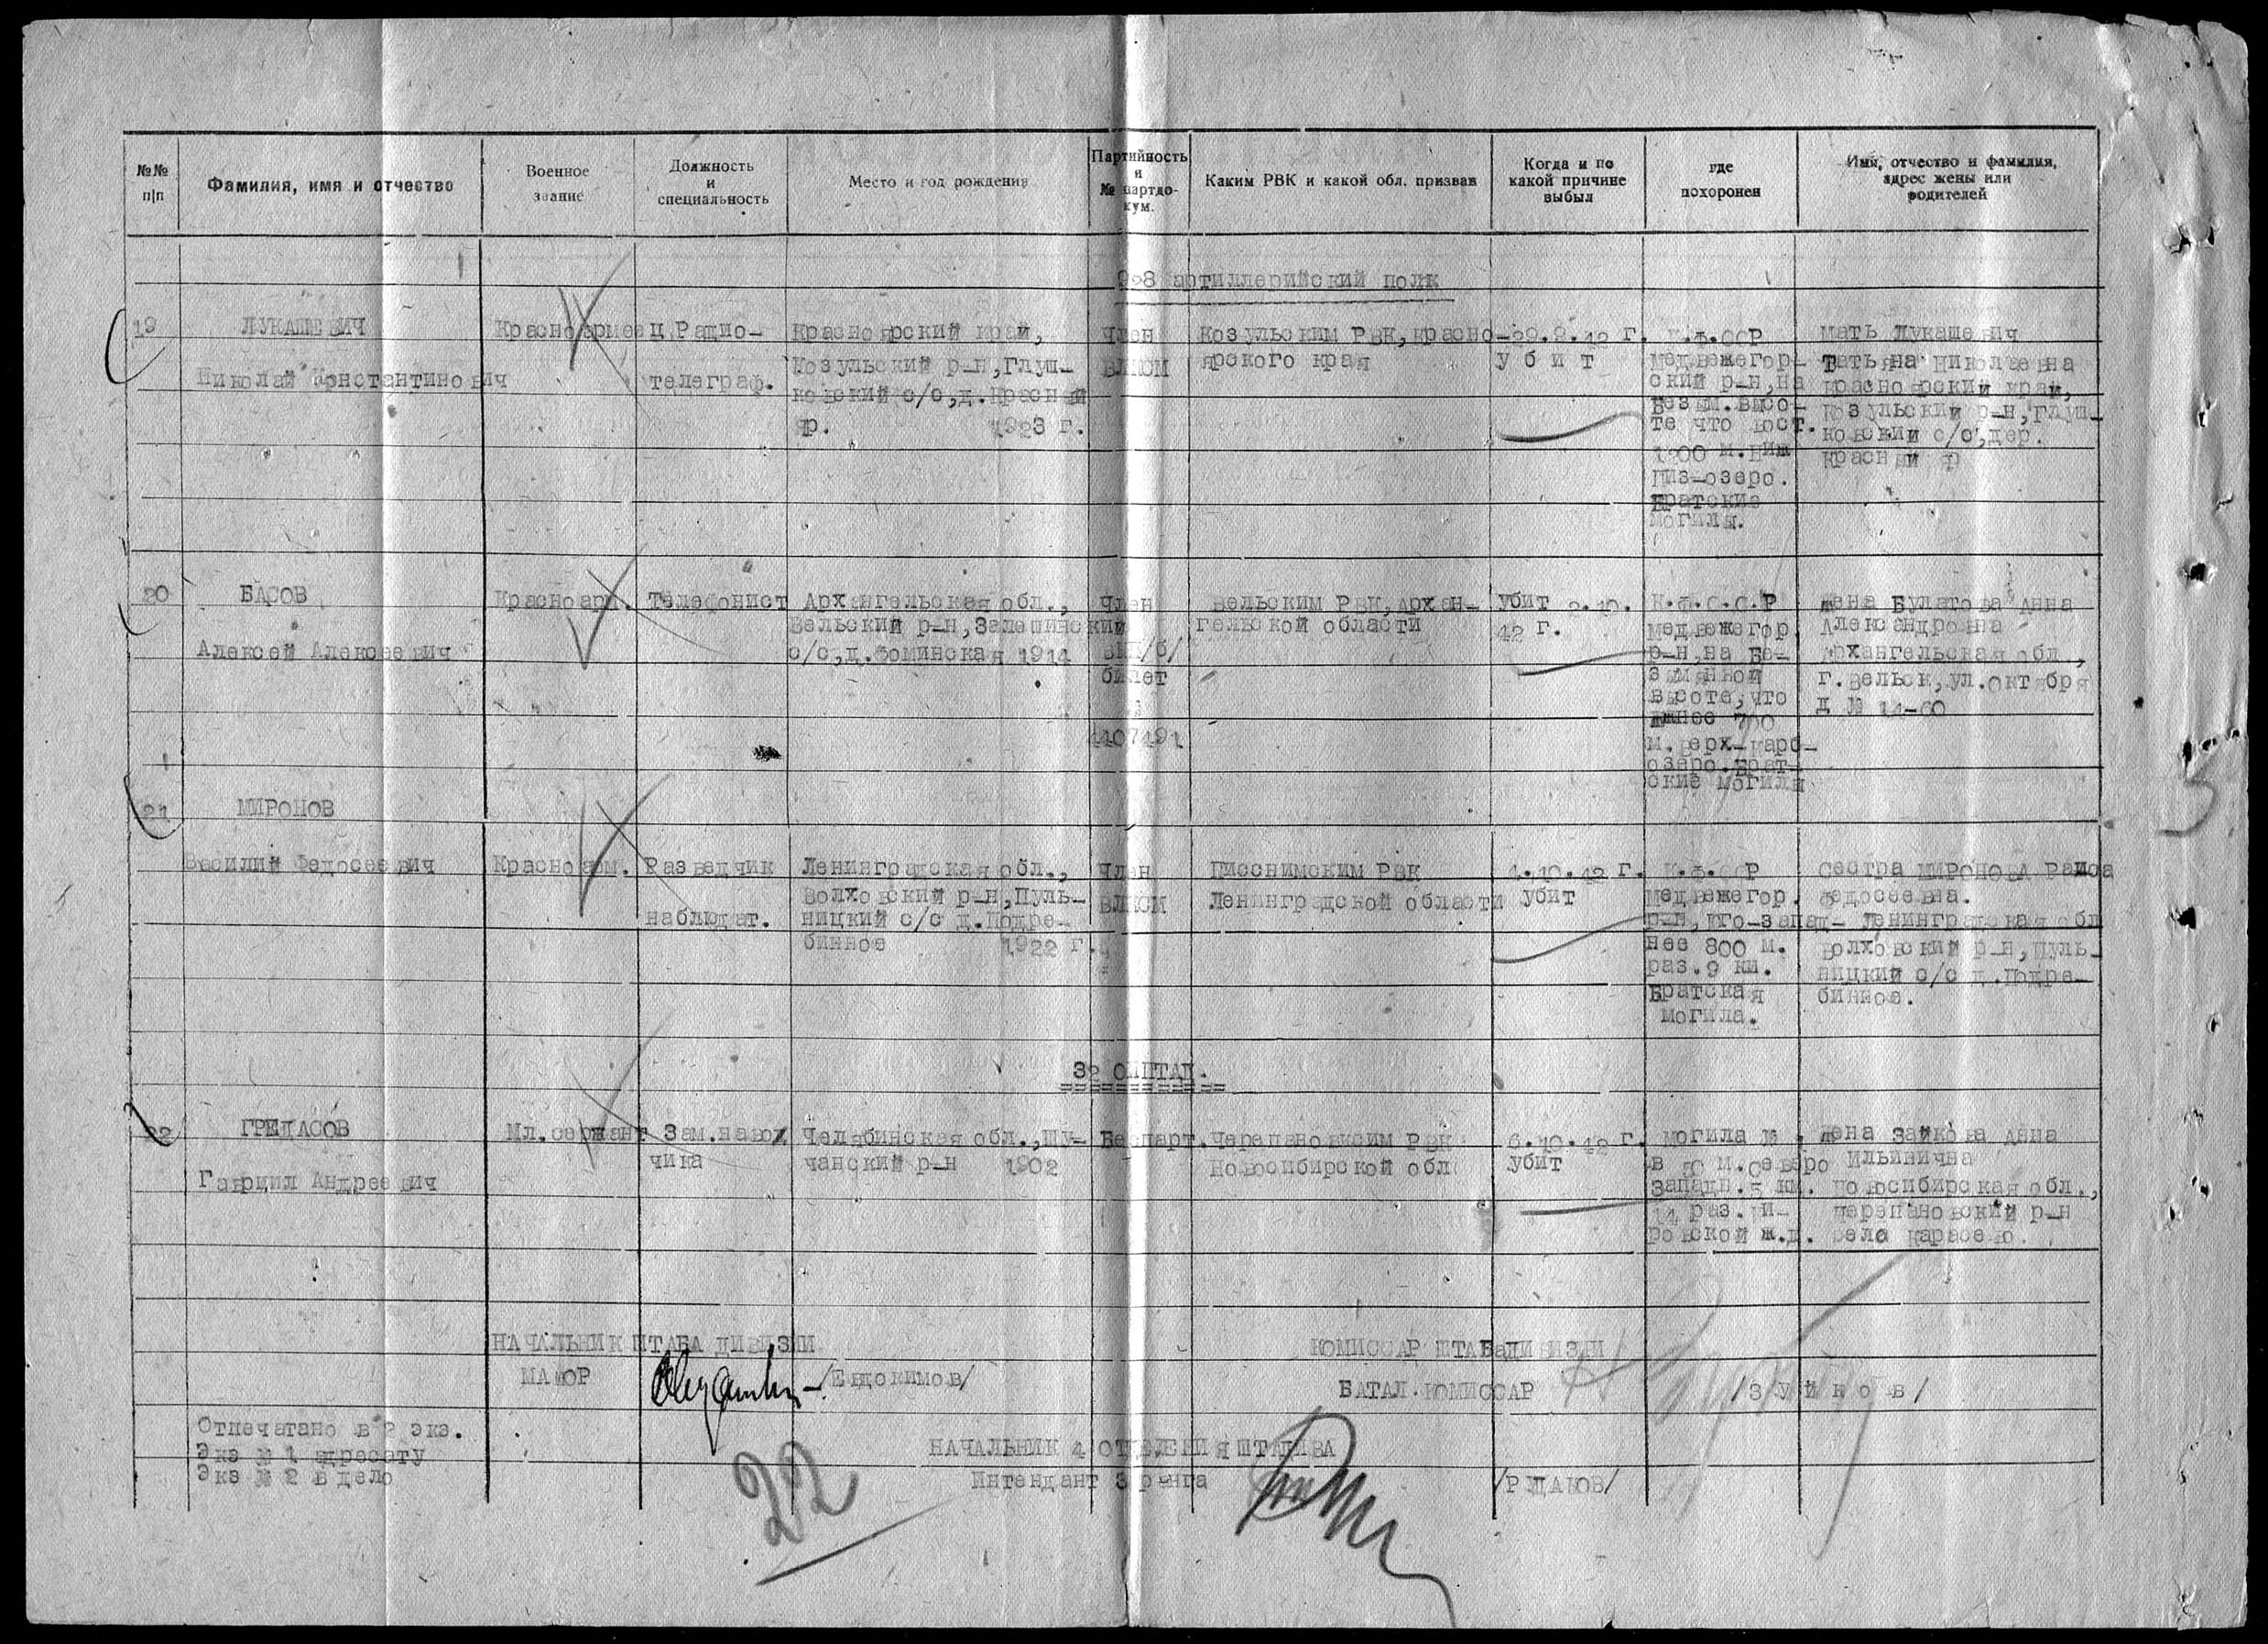 №№ п|п
Фамилия, имя и отчество
Военное звание
Должность и специальность
Место и год рождения
Партийность и № партдо- кум.
Каким РВК и какой обл. призван
Когда и по какой причине выбыл
где похоронен
Имя, отчество и фамилия, адрес жены или родителей
928 артиллерийский полк
19
ЛУКАШЕВИЧ
Николай Константинович
Красноармеец
Радио-
телеграф.
Красноярский край,
Козульский р-н, Глуш-
ковский с/с, д. Красный
Яр. 1923 г.
Член
ВЛКСМ
Козульским РВК, Красно-
ярского края
29.9.42 г.
у б и т
К.Ф.ССР
Медвежегор-
ский р-н, на
Безым. высо-
те что вост.
1200 м. Ниж
Пиз-озеро.
Братские
могилы.
Мать Лукашевич
Татьяна Николаевна
Красноярский край,
Козульский р-н, Глуш-
ковский с/с, дер.
Красный Яр
20
БАСОВ
Алексей Алексеевич
Красноарм.
Телефонист
Архангельская обл.,
Вельский р-н, Залешинский
с/с, д. Фоминская 1914
Член
ВКП/б/
билет
4407491
Вельским РВК, Архан-
гельской области
Убит 2.10.
42 г.
К.Ф.С.С.Р
Медвежегор.
р-н, на Бе-
зымянной
высоте, что
южнее 700
м. Верх-Карб-
озеро. Брат-
ские могилы
Жена Булатова Анна
Александровна
Архангельская обл.,
г. Вельск, ул. Октября
д № 14-60
21
МИРОНОВ
Василий Федосеевич
Красноарм.
Разведчик
наблюдат.
Ленинградская обл.,
Волховский р-н, Пуль-
ницкий с/с д. Подре-
бинное 1922 г.
Член
ВЛКСМ
РВК
Ленинградской области
4.10.42 г.
убит
К.Ф.ССР
Медвежегор.
р-н, юго-запад-
нее 800 м.
раз. 9 км.
Братская
могила.
Сестра МИРОНОВА Раиса
Федосеевна.
Ленинградская обл
Волховский р-н, Пуль-
ницкий с/с д. Подре-
бинное.
32 ОПТАД.
22
ГРЕДАСОВ
Гавриил Андреевич
Мл. сержант
Зам. навод
чика
Челябинская обл., Шу-
чанский р-н 1902
Беспарт.
Черепановским РВК
Новосибирской обл
6.10.42 г.
убит
Могила №
в 50 м. северо
западн. 5 км.
14 раз. Ки-
ровской ж.д.
Жена Зайкова Анна
Ильинична
Новосибирская обл.,
Черепановский р-н
село Карасево.
НАЧАЛЬНИК ШТАБА ДИВИЗИИ
МАЙОР /Евдокимов/
КОМИССАР ШТАБа ДИВИЗИИ
БАТАЛ. КОМИССАР /З у й к о в/
Отпечатано в 2 экз.
Экз № 1 адресату
Экз № 2 в дело
НАЧАЛЬНИК 4 ОТДЕЛЕНИЯ ШТАДИВА
Интендант 3 ранга /РУДАКОВ/
22